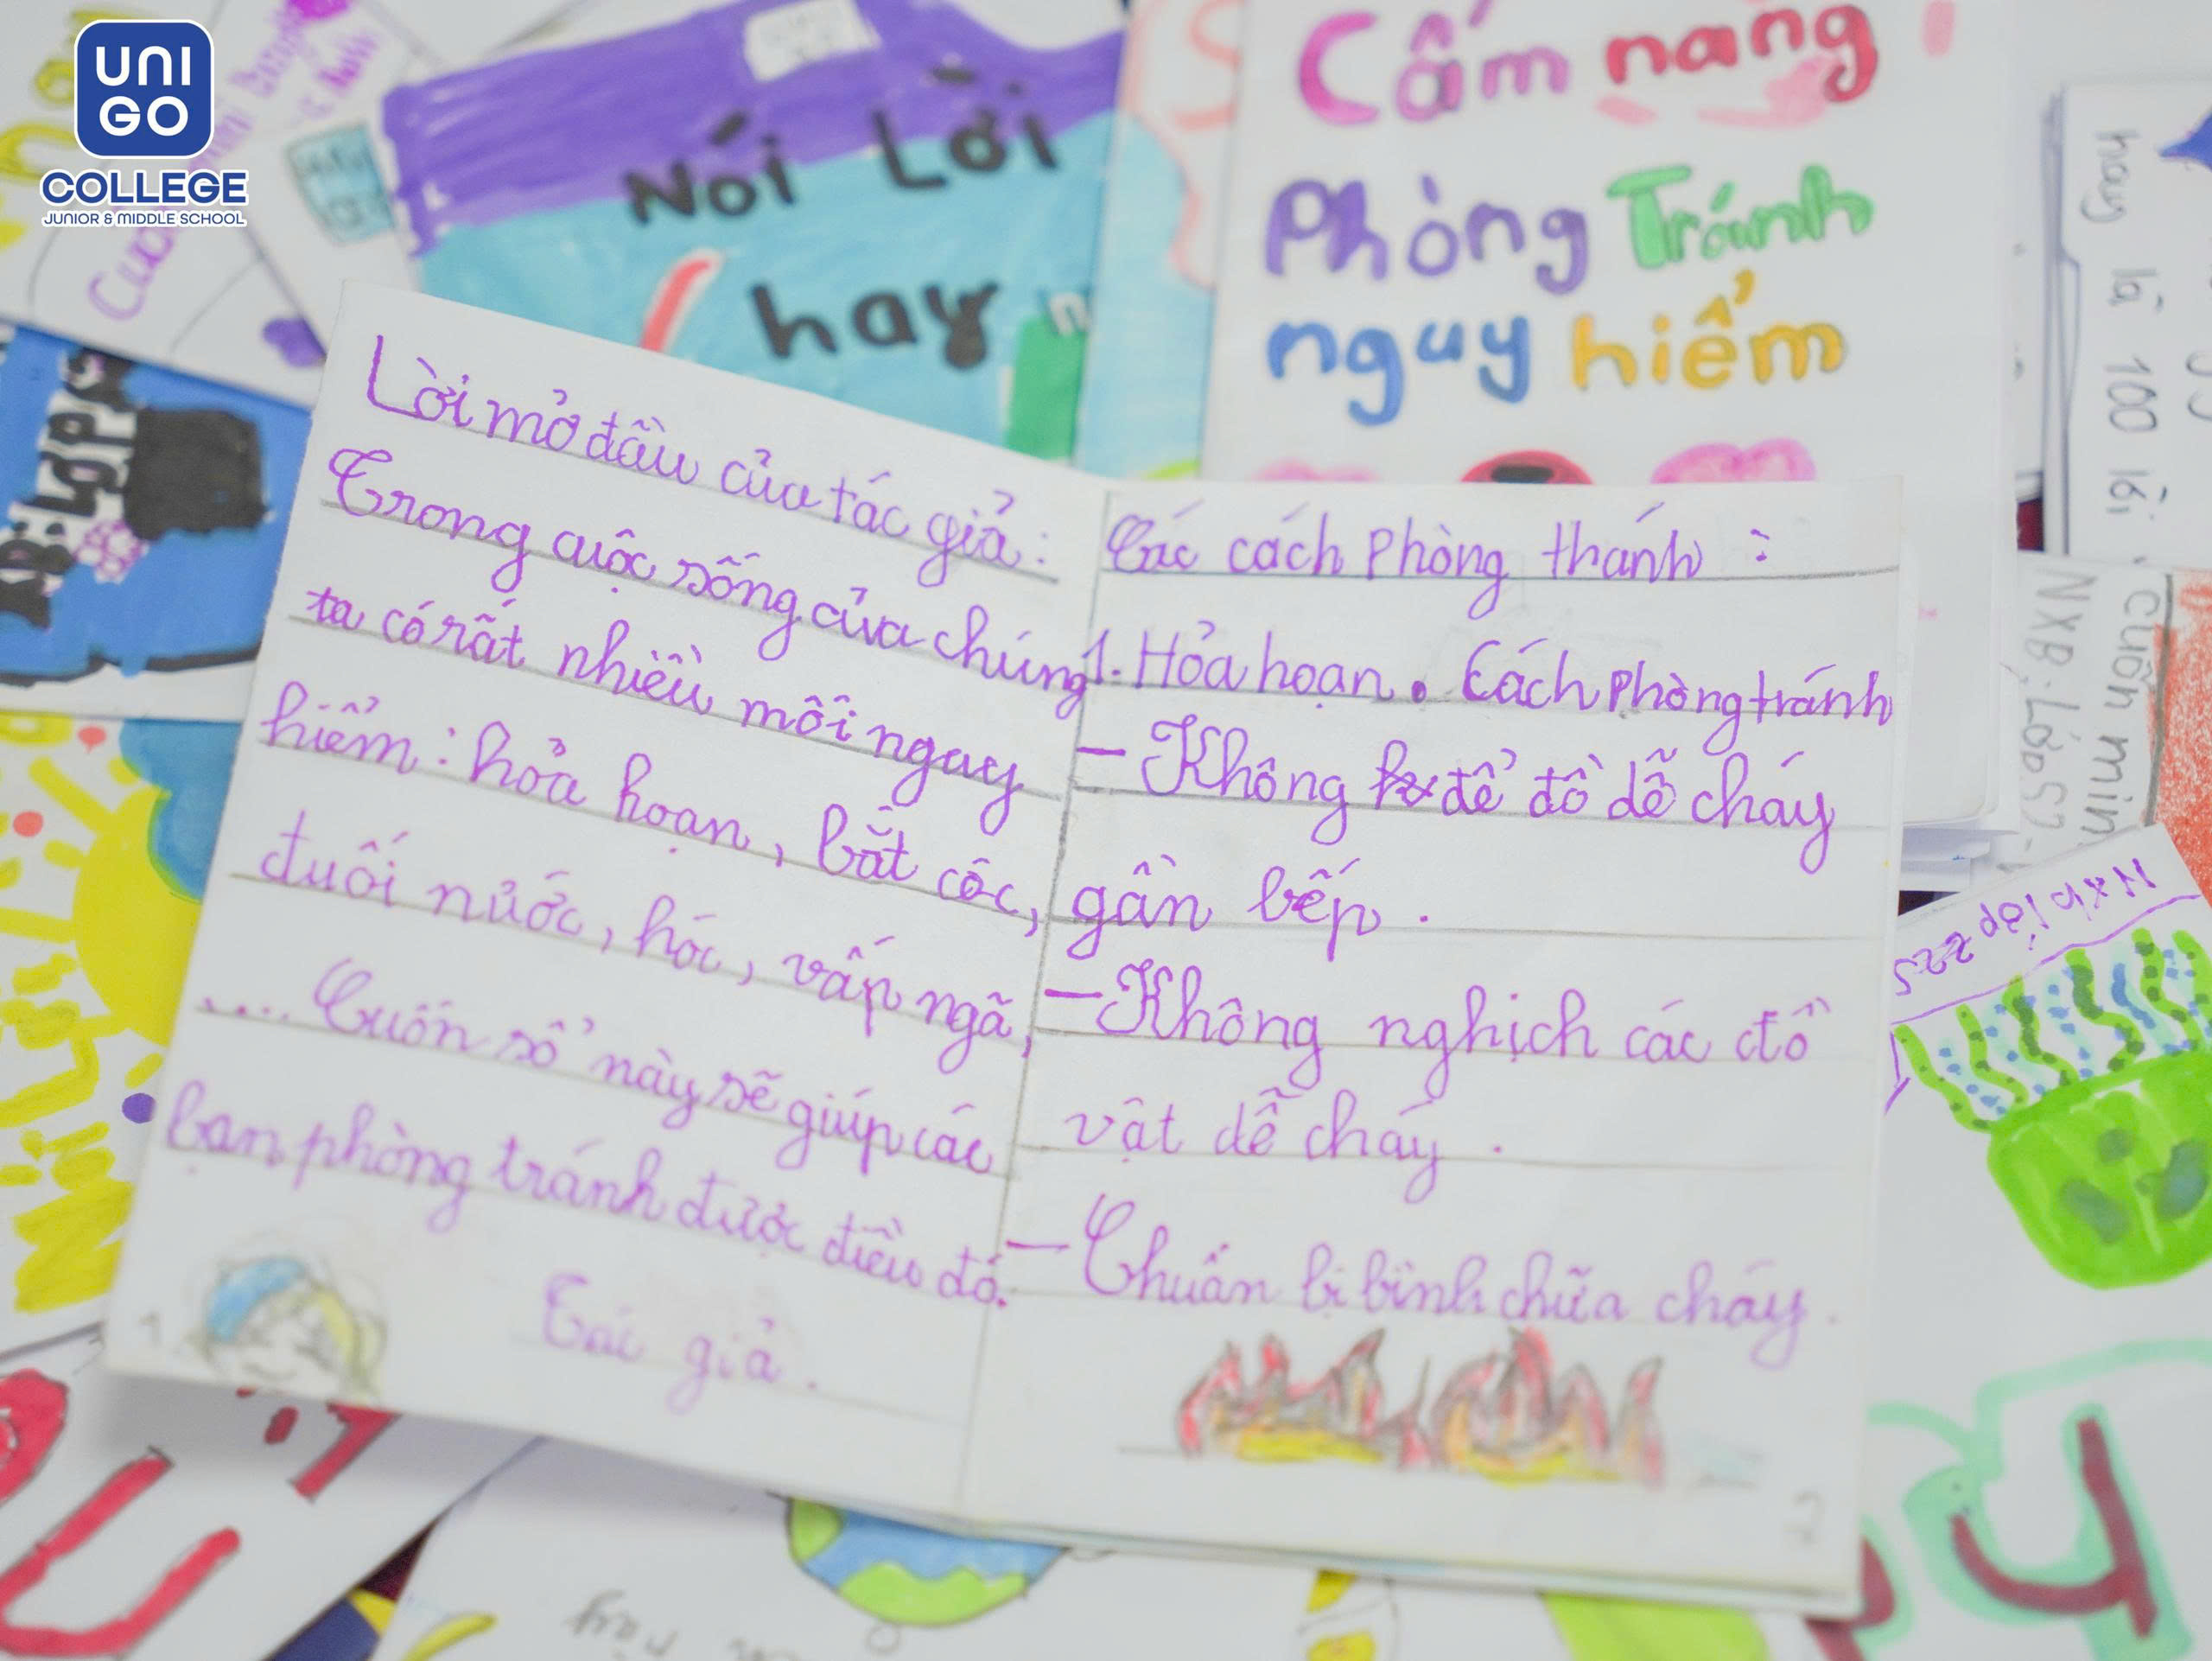 UNI
GO
COLLEGE
JUNIOR & MIDDLE SCHOOL
Nói Lời
hay
Cẩm nang
Phòng Tránh
nguy hiểm
hay là 100 lời
Cuốn min
NXB. Lớp.
Nxb lớp 2
Lời mở đầu của tác giả:
Trong cuộc sống của chúng
ta có rất nhiều mối nguy
hiểm: hỏa hoạn, bắt cóc,
đuối nước, hóc, vấp ngã,
.... Cuốn sổ này sẽ giúp các
bạn phòng tránh được điều đó.
Tác giả.
1
Các cách phòng thánh :
1. Hỏa hoạn. Cách phòng tránh
- Không để đồ dễ cháy
gần bếp.
- Không nghịch các đồ
vật dễ cháy.
- Chuẩn bị bình chữa cháy.
2